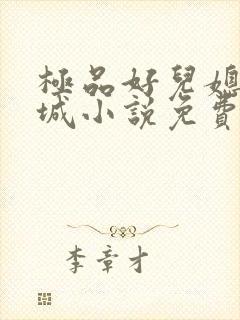 極品好兒媳
城小說免費
李章才